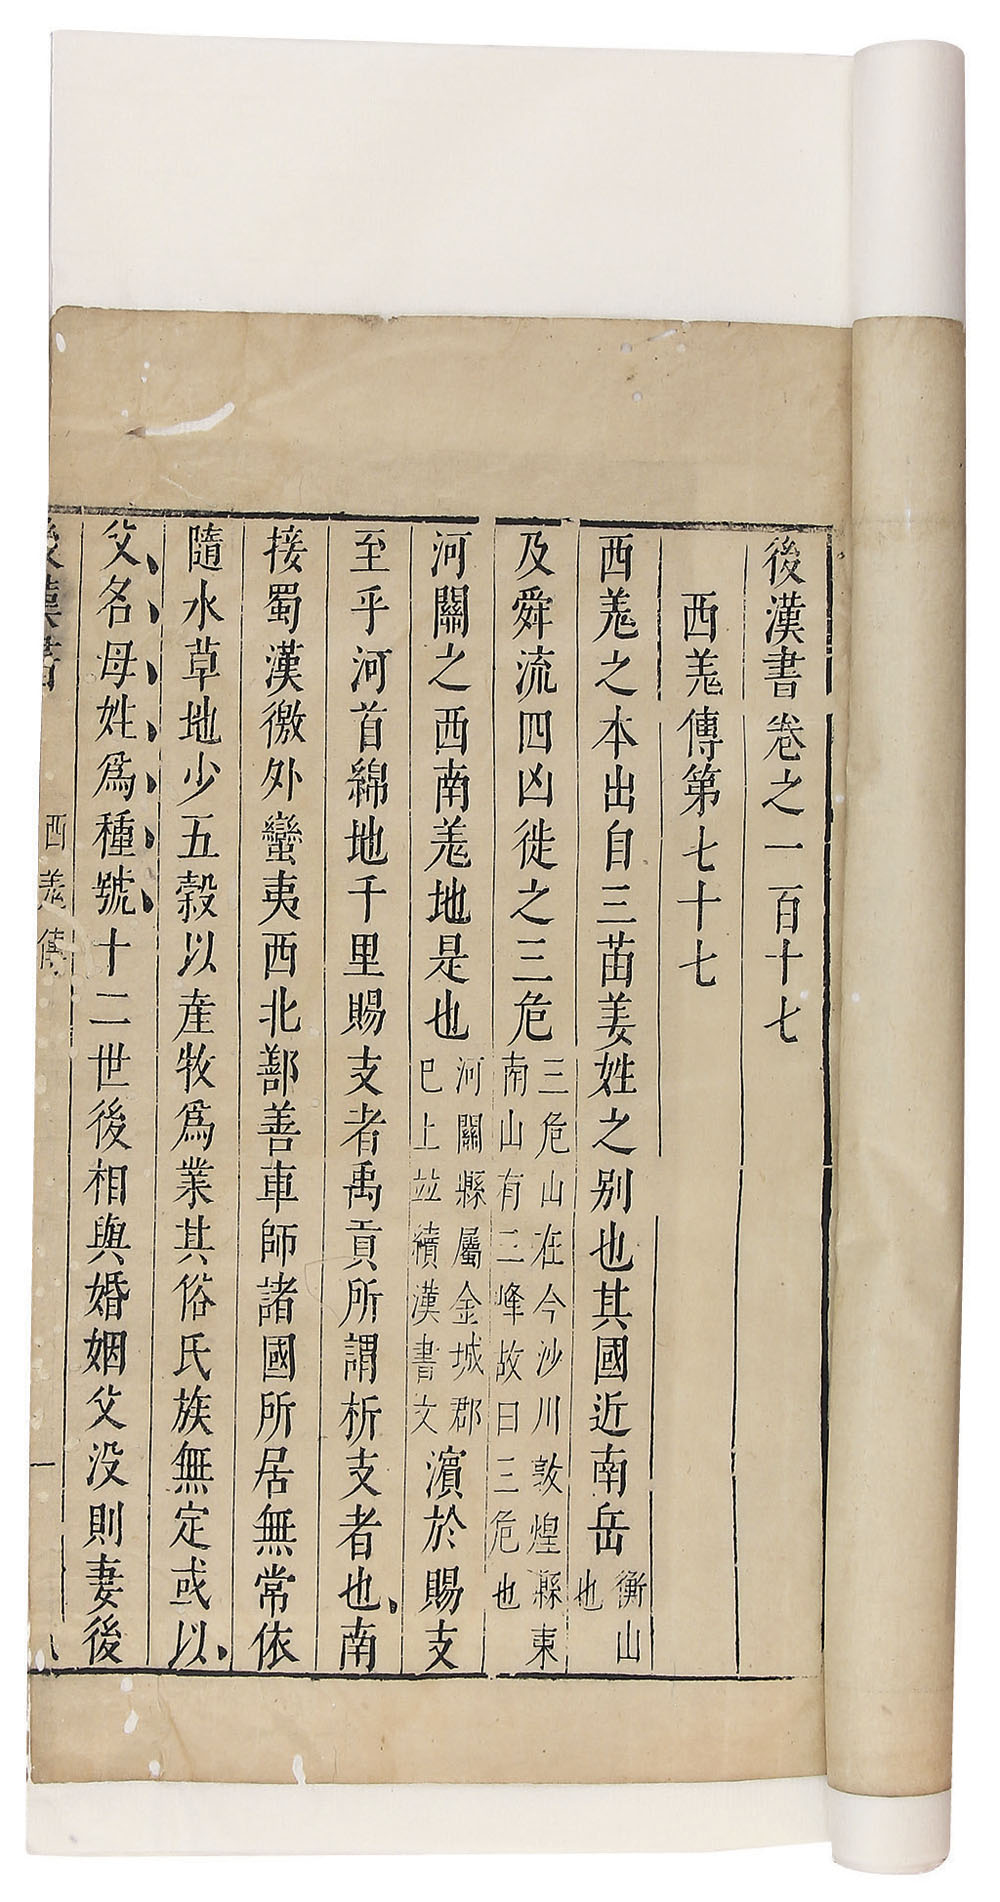 後漢書卷之一百十七
西羗傳第七十七
西羗之本出自三苗姜姓之别也其國近南岳衡山也
及舜流四凶徙之三危三危山在今沙川敦煌縣東南山有三峰故曰三危也
河關之西南羗地是也河關縣屬金城郡巳上竝續漢書文濵於賜支
至乎河首綿地千里賜支者禹貢所謂析支者也南
接蜀漢徼外蠻夷西北鄯善車師諸國所居無常依
隨水草地少五榖以產牧爲業其俗氏族無定或以
父名母姓爲種號十二世後相與婚姻父没則妻後
後漢書 西羗傳 一